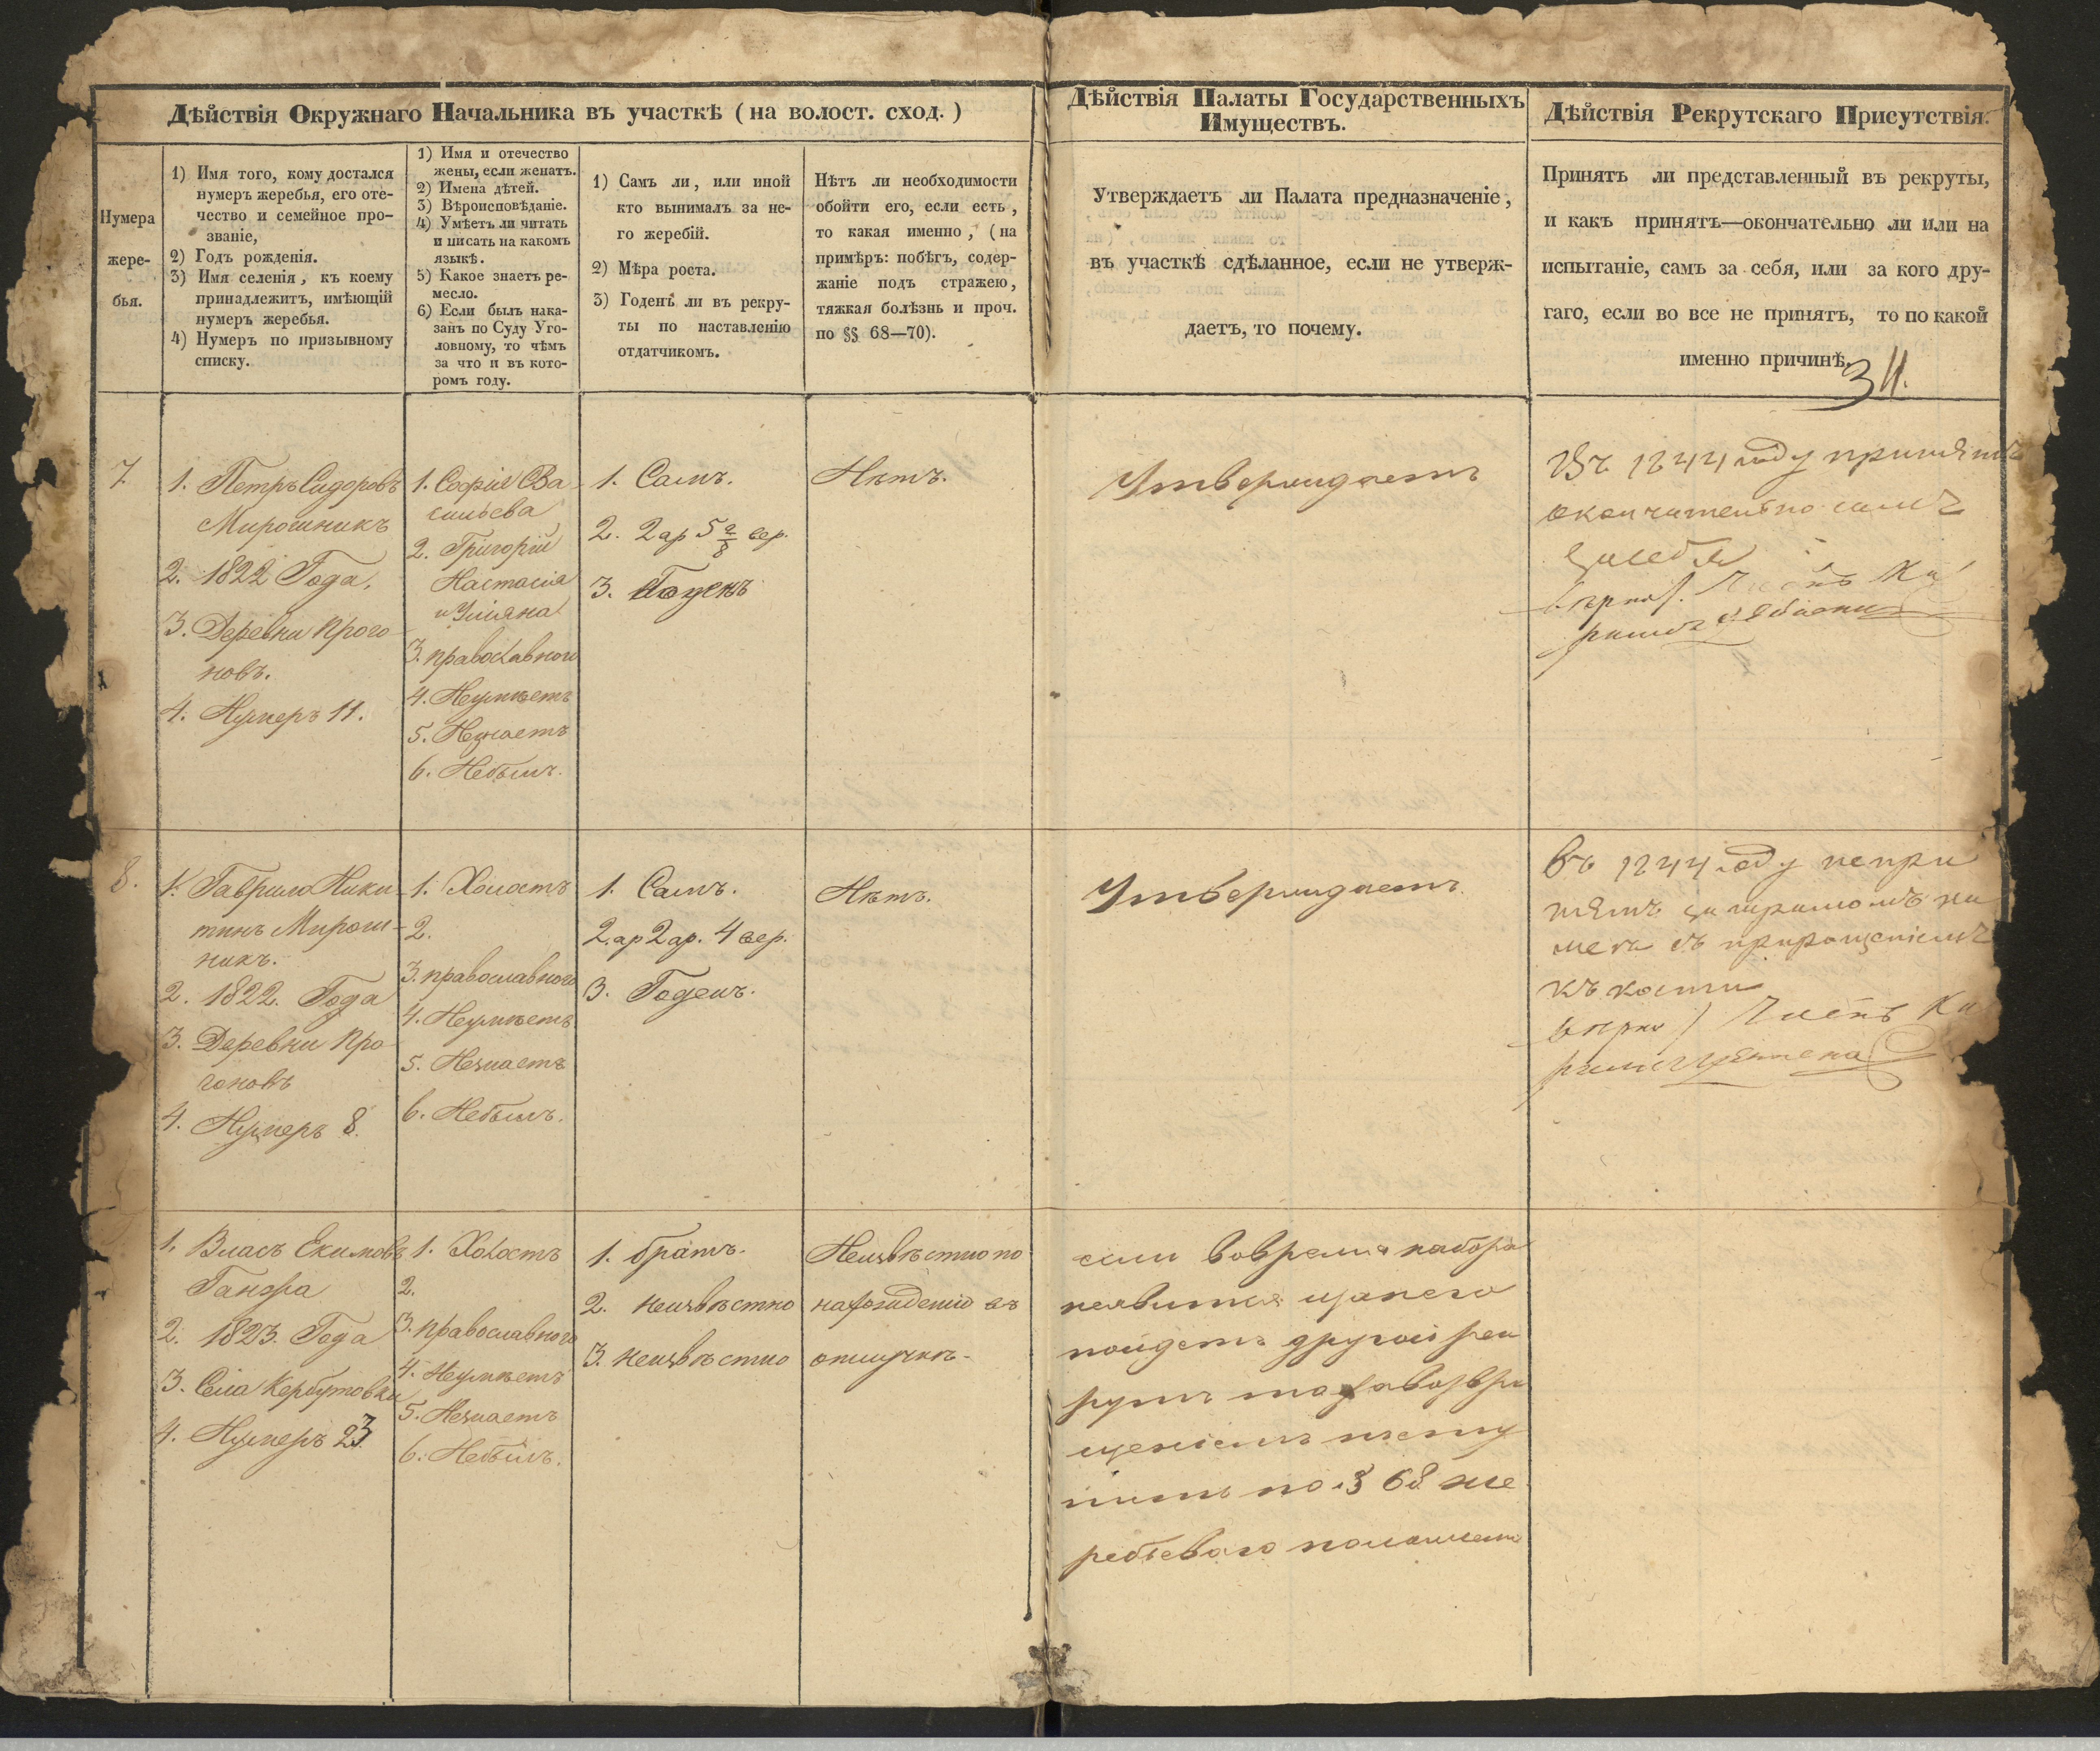 Дѣйствія Окружнаго Начальника въ участкѣ (на волост. сход.)
Нумера
жере-
бья.
1) Имя того, кому достался
нумеръ жеребья, его оте-
чество и семейное про-
званіе,
2) Годъ рожденія.
3) Имя селенія, къ коему
принадлежитъ, имѣющій
нумеръ жеребья.
4) Нумеръ по призывному
списку.
1) Имя и отечество
жены, если женатъ.
2) Имена дѣтей.
3) Вѣроисповѣданіе.
4) Умѣетъ ли читать
и писать на какомъ
языкѣ.
5) Какое знаетъ ре-
месло.
6) Если былъ нака-
занъ по Суду Уго-
ловному, то чѣмъ
за что и въ кото-
ромъ году.
1) Самъ ли, или иной
кто вынималъ за не-
го жеребій.
2) Мѣра роста.
3) Годенъ ли въ рекру-
ты по наставленію
отдатчикомъ.
Нѣтъ ли необходимости
обойти его, если есть,
то какая именно, (на
примѣръ: побѣгъ, содер-
жаніе подъ стражею,
тяжкая болѣзнь и проч.
по §§ 68—70).
Дѣйствія Палаты Государственныхъ
Имуществъ.
Утверждаетъ ли Палата предназначеніе,
въ участкѣ сдѣланное, если не утверж-
даетъ, то почему.
Дѣйствія Рекрутскаго Присутствія.
Принятъ ли представленный въ рекруты,
и какъ принятъ—окончательно ли или на
испытаніе, самъ за себя, или за кого дру-
гаго, если во все не принятъ, то по какой
именно причинѣ.
7
1. Петръ Сидоровъ
Мирошникъ
2. 1822 Года.
3. Деревни Прого
новъ.
4. Нумеръ 11.
1. Софія Ва
сильева
2. Григорій
Настасія
и Уліяна
3. православного
4. Неумѣетъ
5. Незнаетъ
6. Небылъ.
1. Самъ.
2. 2 ар 5 2/8 вер.
3. Годенъ
Нѣтъ.
Утверждаетъ
Въ 1844 году принятъ
окончательно самъ
за себя
8.
1. Гаврило Ники
тинъ Мирош-
никъ.
2. 1822. Года
3. Деревни Про
гоновъ
4. Нумеръ 8.
1. Холостъ
2.
3. православного
4. Неумѣетъ
5. Незнаетъ
6. Небылъ.
1. Самъ.
2. ар 2 ар. 4 вер.
3. Годенъ.
Нѣтъ.
Утверждаетъ.
Въ 1844 году непри
нятъ за
съ прирощеніемъ
къ кости
1. Власъ Екимовъ
Ганжа
2. 1823. Года
3. Села Кербутовки
4. Нумеръ 23
1. Холостъ
2.
3. православного
4. Неумѣетъ
5. Незнаетъ
6. Небылъ.
1. братъ.
2. неизвѣстно
3. неизвѣстно
Неизвѣстно по
нахожденію въ
отлучкѣ.
если вовремя набора
неявится занего
пойдетъ другой рек
рутъ
по § 68 же
ребьеваго положенія